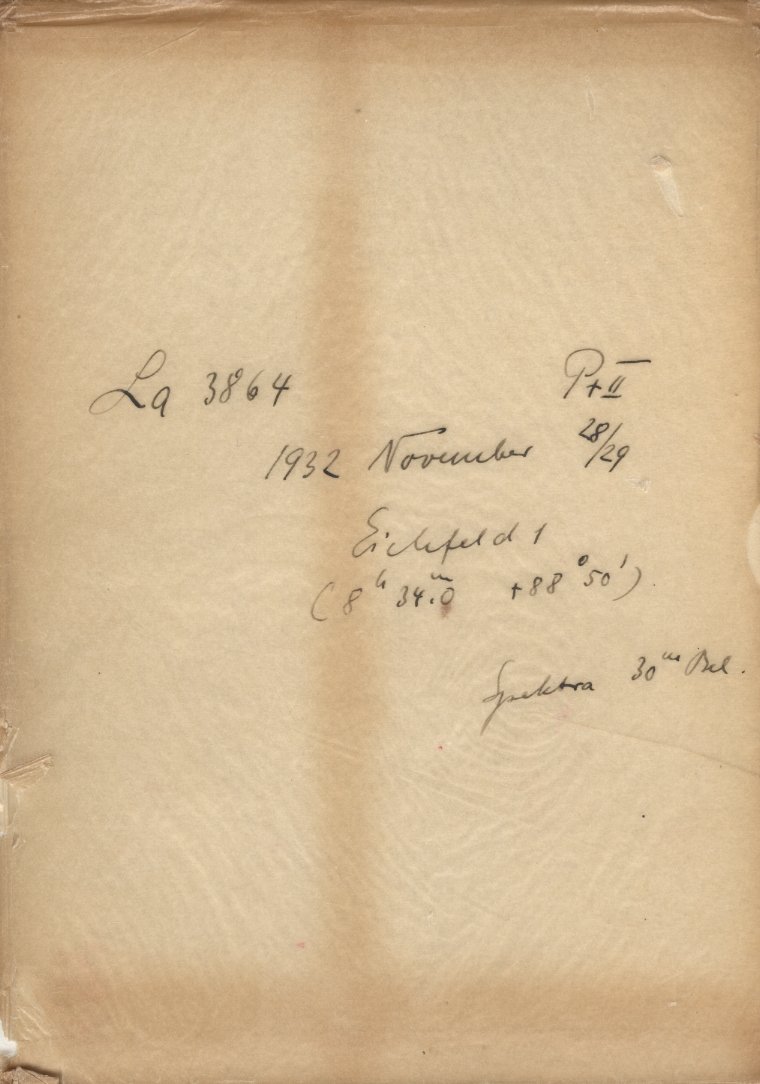 La 3864 P+II
1932 November 28/29
Eichfeld 1
(8h 34m.0 +88°50')
Spektra 30m Bel.